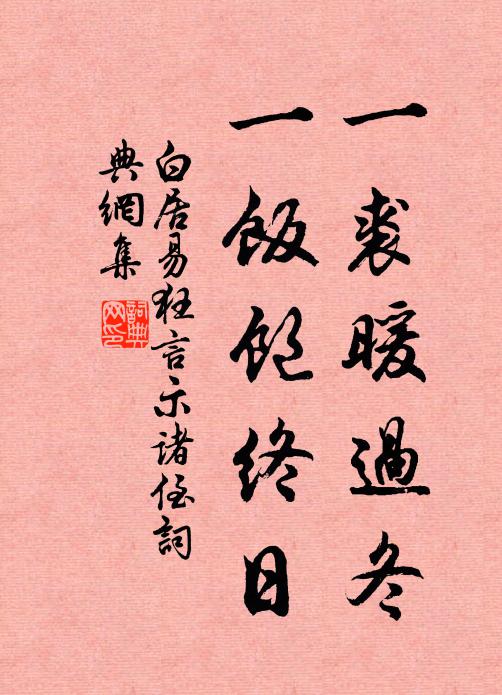 一裘暖過冬
一飯飽終日
白居易狂言示諸侄詞
典網集
詞典
网印